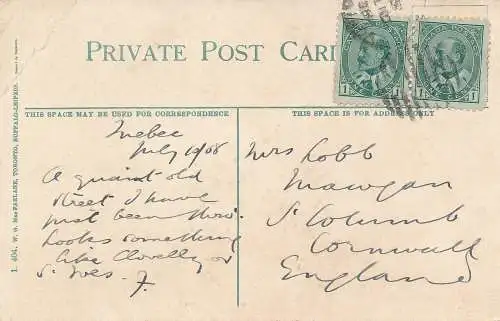 PRIVATE POST CARD
THIS SPACE MAY BE USED FOR CORRESPONDENCE.
THIS SPACE IS FOR ADDRESS ONLY
Quebec
July 10/08
A quaint old
street I have
just been thro'.
Looks something
like Clovelly or
St. Ives. J.
Mrs Cobb
Mawgan
St Columb
Cornwall
England
1. 404. W. G. MacFARLANE, TORONTO, BUFFALO-LEIPZIG.
1 1
1 1